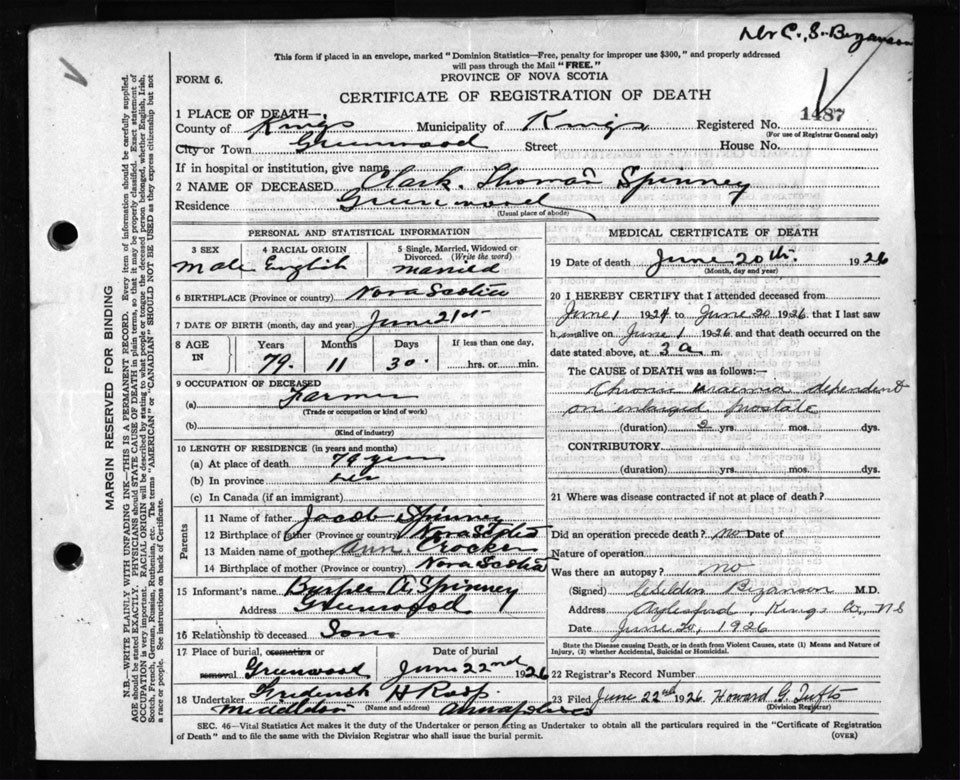 Dr C. S. Bezanson
This form if placed in an envelope, marked "Dominion Statistics—Free, penalty for improper use $300," and properly addressed
will pass through the Mail "FREE."
FORM 6.
PROVINCE OF NOVA SCOTIA
CERTIFICATE OF REGISTRATION OF DEATH
1487
1 PLACE OF DEATH—
County of Kings Municipality of Kings Registered No.
(For use of Registrar General only)
City or Town Greenwood Street House No.
If in hospital or institution, give name
2 NAME OF DECEASED Clark Thomas Spinney
Residence Greenwood
(Usual place of abode)
PERSONAL AND STATISTICAL INFORMATION
3 SEX 4 RACIAL ORIGIN 5 Single, Married, Widowed or
Divorced. (Write the word)
Male English Married
6 BIRTHPLACE (Province or country) Nova Scotia
7 DATE OF BIRTH (month, day and year) June 21st
8 AGE IN Years Months Days If less than one day,
79 11 30 hrs. or min.
9 OCCUPATION OF DECEASED
(a) Farmer
(Trade or occupation or kind of work)
(b)
(Kind of industry)
10 LENGTH OF RESIDENCE (in years and months)
(a) At place of death 79 years
(b) In province
(c) In Canada (if an immigrant)
Parents
11 Name of father Jacob Spinney
12 Birthplace of father (Province or country) Nova Scotia
13 Maiden name of mother Ann Crocker
14 Birthplace of mother (Province or country) Nova Scotia
15 Informant's name Burpee A. Spinney
Address Greenwood
16 Relationship to deceased Son
17 Place of burial, cremation or Date of burial
removal Greenwood June 22nd 1926
18 Undertaker Frederick H Roop
Middleton (Name and address) Annapolis Co
MEDICAL CERTIFICATE OF DEATH
19 Date of death June 20th. 1926
(Month, day and year)
20 I HEREBY CERTIFY that I attended deceased from
June 1 1924 to June 20 1926 that I last saw
him alive on June 1 1926 and that death occurred on the
date stated above, at 3 a m.
The CAUSE of DEATH was as follows:—
Chronic uraemia dependent
on enlarged prostate
(duration) 2 yrs. mos. dys.
CONTRIBUTORY
(duration) yrs. mos. dys.
21 Where was disease contracted if not at place of death?
Did an operation precede death? no Date of
Nature of operation
Was there an autopsy? no
(Signed) Bezanson M.D.
Address Aylesford, Kings Co, N S
Date June 20, 1926
State the Disease causing Death, or in death from Violent Causes, state (1) Means and Nature of
Injury, (2) whether Accidental, Suicidal or Homicidal.
22 Registrar's Record Number
23 Filed June 22nd 1926 Howard G. Tufts
(Division Registrar)
SEC. 46—Vital Statistics Act makes it the duty of the Undertaker or person acting as Undertaker to obtain all the particulars required in the "Certificate of Registration
of Death" and to file the same with the Division Registrar who shall issue the burial permit.
(OVER)
MARGIN RESERVED FOR BINDING
N.B.—WRITE PLAINLY WITH UNFADING INK—THIS IS A PERMANENT RECORD. Every item of information should be carefully supplied.
AGE should be stated EXACTLY. PHYSICIANS should STATE CAUSE OF DEATH in plain terms, so that it may be properly classified. Exact statement of
OCCUPATION is very important. RACIAL ORIGIN will be described by stating to what people or tongue the deceased person belonged, whether English, Irish,
Scotch, French, German, Russian, Ruthenian, etc. The terms "AMERICAN" or "CANADIAN" SHOULD NOT BE USED as they express citizenship but not
a race or people. See instructions on back of Certificate.